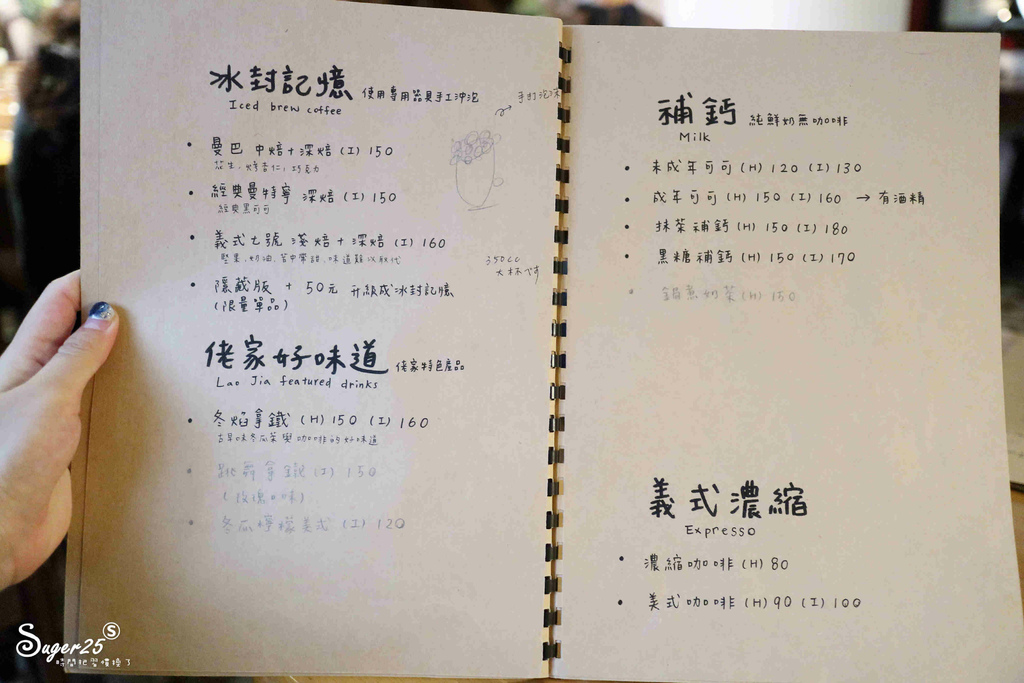 冰封記憶 使用專用器具手工沖泡
Iced brew coffee
手打泡沫
• 曼巴 中焙+深焙 (I) 150
花生,烤杏仁,巧克力
• 經典曼特寧 深焙 (I) 150
經典黑可可
• 義式七號 淺焙+深焙 (I) 160
堅果.奶油.苦中帶甜.味道難以取代
350cc
大杯
• 隱藏版 + 50元 升級成冰封記憶
(限量單品)
佬家好味道 佬家特色產品
Lao Jia featured drinks
• 冬焰拿鐵 (H) 150 (I) 160
古早味冬瓜茶與咖啡的好味道
• 跳舞拿鐵 (I) 150
(玫瑰口味)
• 冬瓜檸檬美式 (I) 120
補鈣 純鮮奶無咖啡
Milk
• 未成年可可 (H) 120 (I) 130
• 成年可可 (H) 150 (I) 160 → 有酒精
• 抹茶補鈣 (H) 150 (I) 180
• 黑糖補鈣 (H) 150 (I) 170
• 鍋煮奶茶 (H) 150
義式濃縮
Expresso
• 濃縮咖啡 (H) 80
• 美式咖啡 (H) 90 (I) 100
Suger25 S
時間把習慣換了